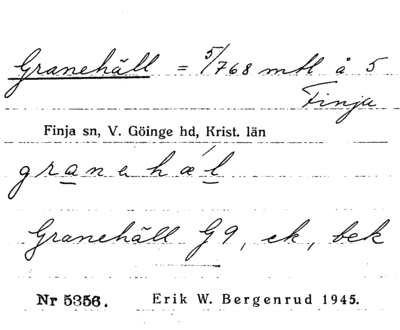 Granehäll = 5/768 mtl å 5
Finja
Finja sn, V. Göinge hd, Krist. län
granehæ´l
Granehäll G9, ek, bek
Nr 5356. Erik W. Bergenrud 1945.